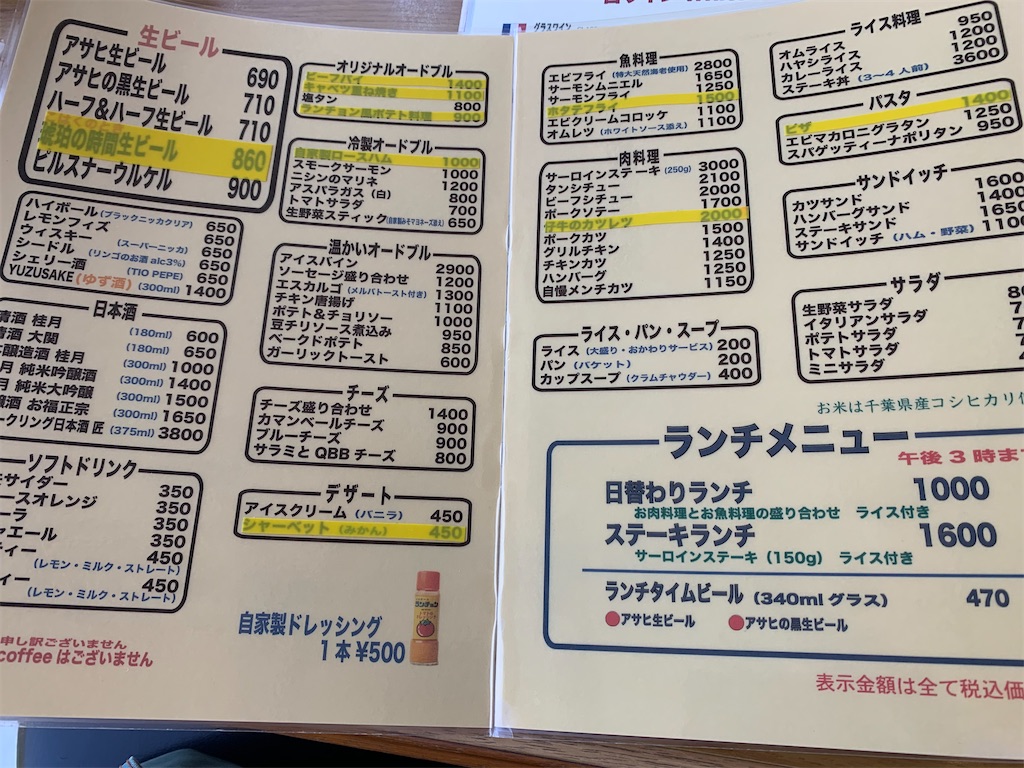 生ビール
アサヒ生ビール 690
アサヒの黒生ビール 710
ハーフ&ハーフ生ビール 710
琥珀の時間生ビール 860
ピルスナーウルケル 900
ハイボール(ブラックニッカクリア) 650
レモンフィズ 650
ウィスキー (スーパーニッカ) 650
シードル (リンゴのお酒 alc3%) 650
シェリー酒 (TIO PEPE) 650
YUZUSAKE(ゆず酒) (300ml) 1400
日本酒
清酒 桂月 (180ml) 600
清酒 大関 (180ml) 650
醸造酒 桂月 (300ml) 1000
月 純米吟醸酒 (300ml) 1400
月 純米大吟醸 (300ml) 1500
醸酒 お福正宗 (300ml) 1650
ークリング日本酒 匠 (375ml) 3800
ソフトドリンク
サイダー 350
ースオレンジ 350
ーラ 350
ャエール 350
ティー 450
(レモン・ミルク・ストレート)
ィー 450
(レモン・ミルク・ストレート)
申し訳ございません
coffee はございません
オリジナルオードブル
ビーフパイ 1400
キャベツ重ね焼き 1100
塩タン 800
ランチョン風ポテト料理 900
冷製オードブル
自家製ロースハム 1000
スモークサーモン 1000
ニシンのマリネ 1200
アスパラガス (白) 800
トマトサラダ 700
生野菜スティック(自家製みそマヨネーズ添え) 650
温かいオードブル
アイスバイン 2900
ソーセージ盛り合わせ 1200
エスカルゴ (メルバトースト付き) 1300
チキン唐揚げ 1100
ポテト&チョリソー 1000
豆チリソース煮込み 950
ベークドポテト 850
ガーリックトースト 600
チーズ
チーズ盛り合わせ 1400
カマンベールチーズ 900
ブルーチーズ 900
サラミと QBB チーズ 800
デザート
アイスクリーム (バニラ) 450
シャーベット (みかん) 450
自家製ドレッシング
1本 ¥500
グラスワイン
魚料理
エビフライ (特大天然海老使用) 2800
サーモンムニエル 1650
サーモンフライ 1250
ホタテフライ 1500
エビクリームコロッケ 1100
オムレツ (ホワイトソース添え) 1100
肉料理
サーロインステーキ (250g) 3000
タンシチュー 2100
ビーフシチュー 2000
ポークソテー 1700
仔牛のカツレツ 2000
ポークカツ 1500
グリルチキン 1400
チキンカツ 1250
ハンバーグ 1250
自慢メンチカツ 1150
ライス・パン・スープ
ライス (大盛り・おかわりサービス) 200
パン (バケット) 200
カップスープ (クラムチャウダー) 400
ライス料理
オムライス 950
ハヤシライス 1200
カレーライス 1200
ステーキ丼 (3〜4人前) 3600
パスタ
ピザ 1400
エビマカロニグラタン 1250
スパゲッティーナポリタン 950
サンドイッチ
カツサンド 1600
ハンバーグサンド 1400
ステーキサンド 1650
サンドイッチ (ハム・野菜) 1100
サラダ
生野菜サラダ
イタリアンサラダ
ポテトサラダ
トマトサラダ
ミニサラダ
お米は千葉県産コシヒカリ
ランチメニュー
午後3時ま
日替わりランチ 1000
お肉料理とお魚料理の盛り合わせ ライス付き
ステーキランチ 1600
サーロインステーキ (150g) ライス付き
ランチタイムビール (340ml グラス) 470
●アサヒ生ビール ●アサヒの黒生ビール
表示金額は全て税込価